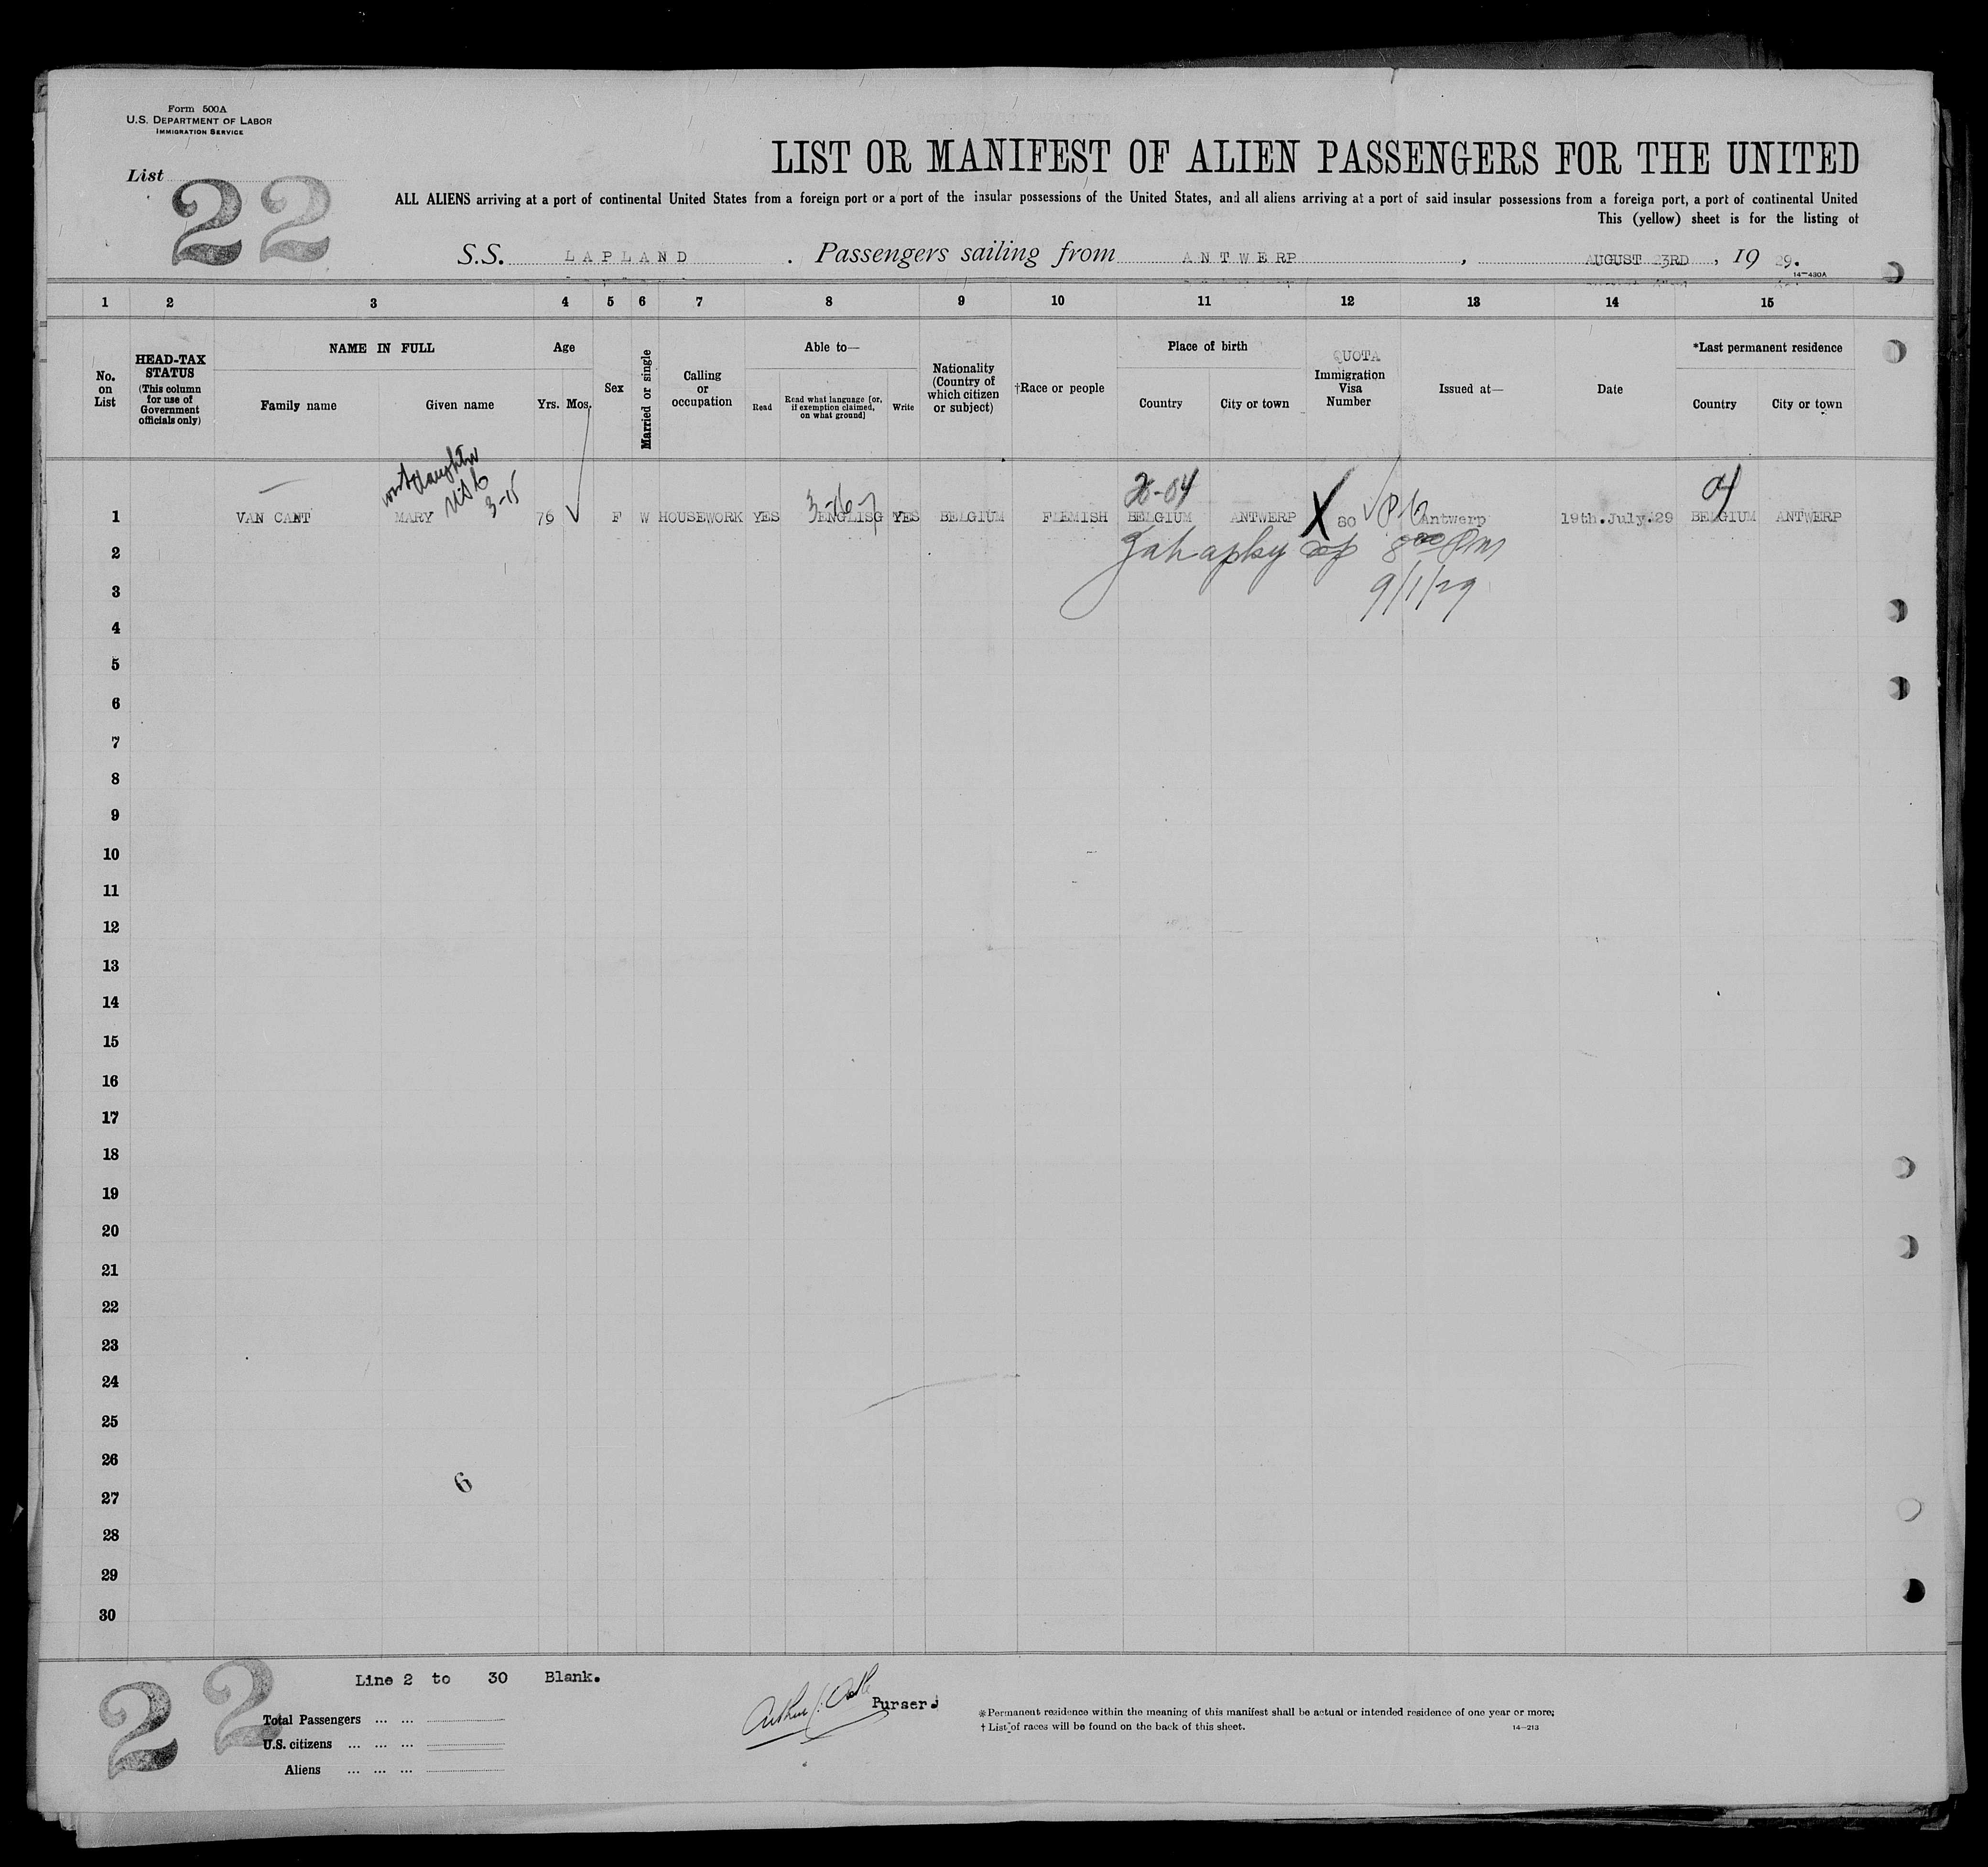 Form 500A
U.S. DEPARTMENT OF LABOR
IMMIGRATION SERVICE
List
22
LIST OR MANIFEST OF ALIEN PASSENGERS FOR THE UNITED
ALL ALIENS arriving at a port of continental United States from a foreign port or a port of the insular possessions of the United States, and all aliens arriving at a port of said insular possessions from a foreign port, a port of continental United
This (yellow) sheet is for the listing of
S.S. LAPLAND . Passengers sailing from ANTWERP , AUGUST 23RD , 19 29.
14—430A
1 2 3 4 5 6 7 8 9 10 11 12 13 14 15
No. on List
HEAD-TAX STATUS (This column for use of Government officials only)
NAME IN FULL
Family name Given name
Age
Yrs. Mos.
Sex
Married or single
Calling or occupation
Able to—
Read Read what language [or, if exemption claimed, on what ground] Write
Nationality (Country of which citizen or subject)
†Race or people
Place of birth
Country City or town
QUOTA Immigration Visa Number
Issued at—
Date
*Last permanent residence
Country City or town
3-15
3-16-7
1 VAN CANT MARY 76 F W HOUSEWORK YES ENGLISG YES BELGIUM FLEMISH BELGIUM ANTWERP 80 Antwerp 19th.July.29 BELGIUM ANTWERP
2 8 00 PM
3 9/1/29
4
5
6
7
8
9
10
11
12
13
14
15
16
17
18
19
20
21
22
23
24
25
26
6
27
28
29
30
22
Line 2 to 30 Blank.
Purser.
Total Passengers ... ...
U.S. citizens ... ... ...
Aliens ... ... ...
*Permanent residence within the meaning of this manifest shall be actual or intended residence of one year or more;
† List of races will be found on the back of this sheet.
14—213